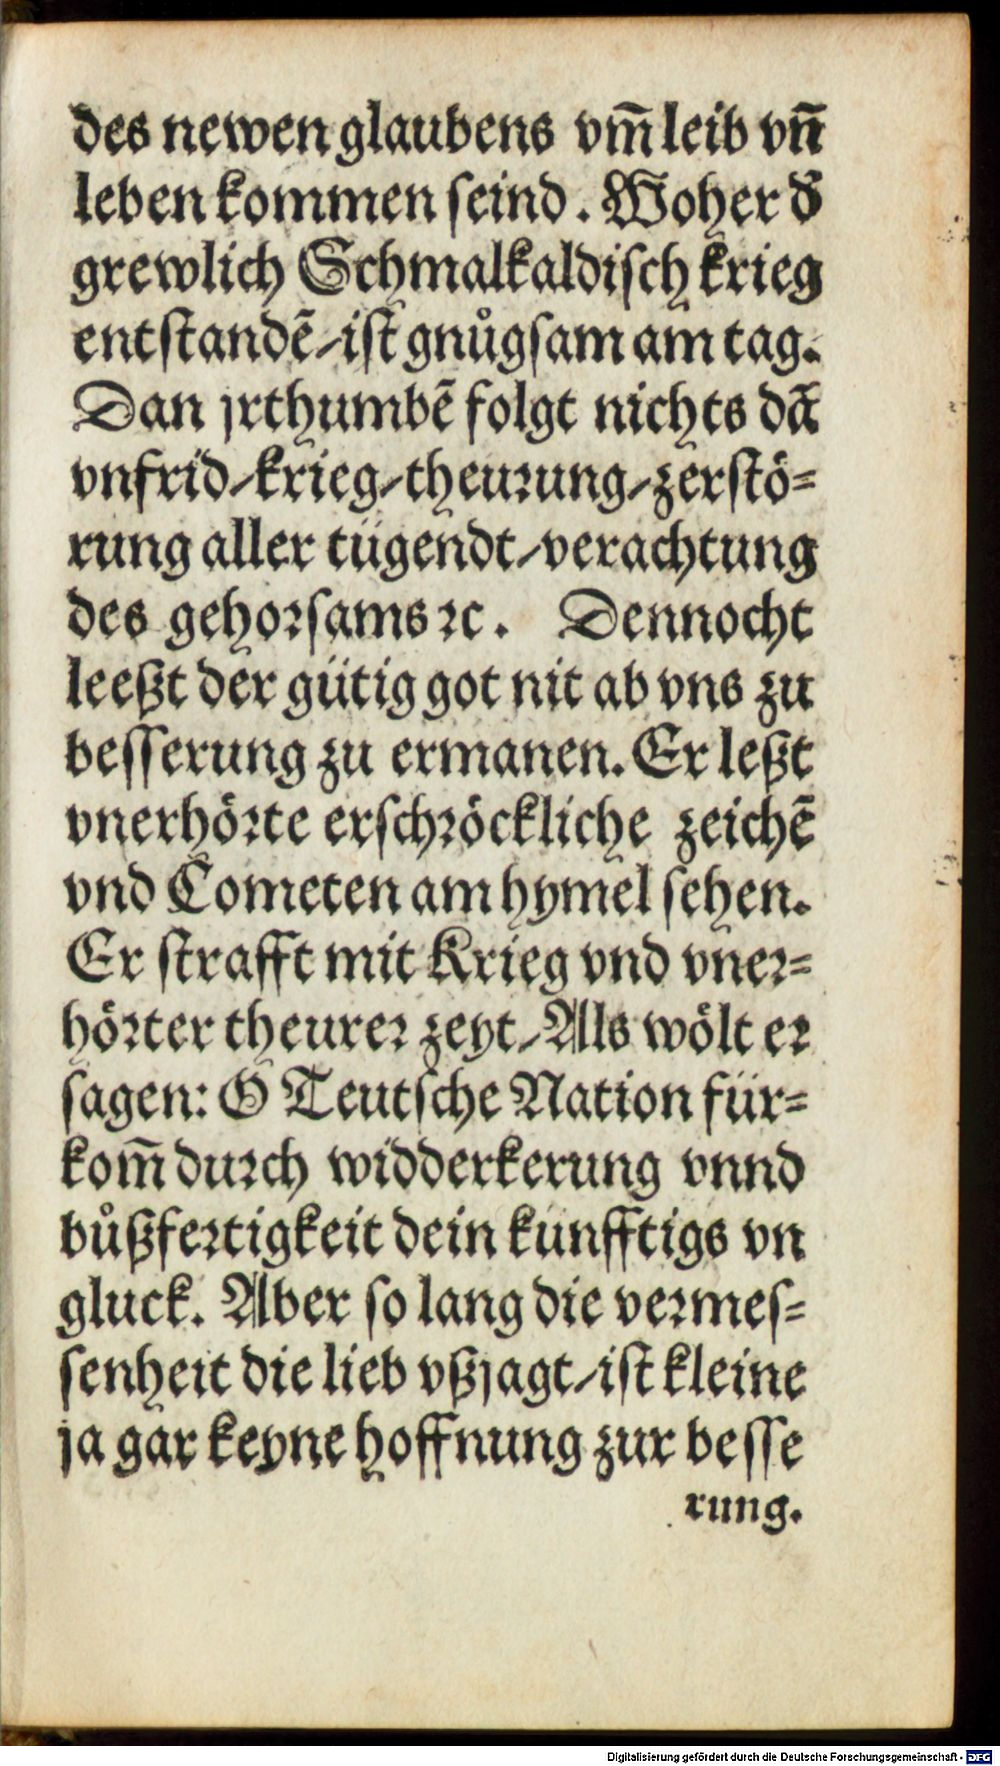 des newen glaubens vm̃ leib vñ
leben kommen seind. Woher d̃
grewlich Schmalkaldisch krieg
entstandẽ/ist gnůgsam am tag.
Dan jrthumbẽ folgt nichts dã
vnfrid/krieg/theurung/zerstö=
rung aller tügendt/verachtung
des gehorsams ꝛc. Dennocht
leeßt der gütig got nit ab vns zu
besserung zu ermanen. Er leßt
vnerhörte erschröckliche zeichẽ
vnd Cometen am hymel sehen.
Er strafft mit Krieg vnd vner=
hörter theurer zeyt/Als wölt er
sagen: O Teutsche Nation für=
kom̃ durch widderkerung vnnd
bůßfertigkeit dein kunfftigs vn
gluck. Aber so lang die vermes=
senheit die lieb vßjagt/ist kleine
ja gar keyne hoffnung zur besse
rung.
Digitalisierung gefördert durch die Deutsche Forschungsgemeinschaft - DFG